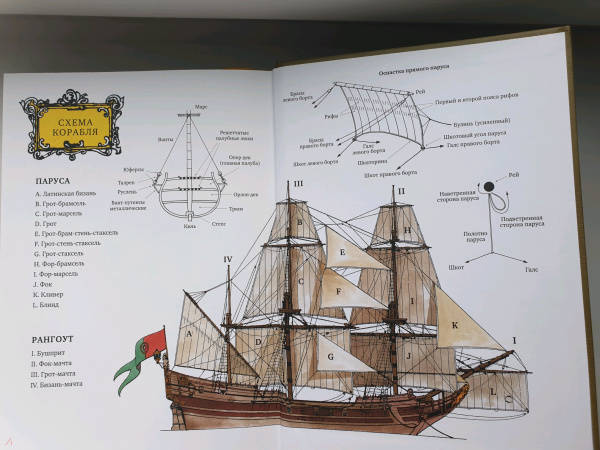 СХЕМА
КОРАБЛЯ
ПАРУСА
A. Латинская бизань
B. Грот-брамсель
C. Грот-марсель
D. Грот
E. Грот-брам-стень-стаксель
F. Грот-стень-стаксель
G. Грот-стаксель
H. Фор-брамсель
I. Фор-марсель
J. Фок
K. Кливер
L. Блинд
РАНГОУТ
I. Бушприт
II. Фок-мачта
III. Грот-мачта
IV. Бизань-мачта
Марс
Ванты
Решетчатые
палубные люки
Опер-дек
(главная палуба)
Юферсы
Талреп
Руслень
Вант-путенсы
металлические
Орлоп-дек
Трюм
Киль
Степс
Оснастка прямого паруса
Брасы
левого борта
Рей
Первый и второй пояса рифов
Рифы
Булинь (усиленный)
Брасы
правого борта
Галс
левого борта
Шкотовый угол паруса
Галс правого борта
Шкот левого борта
Шкаторина
Шкот правого борта
Рей
Наветренная
сторона паруса
Подветренная
сторона паруса
Полотно
паруса
Шкот
Галс
III
II
IV
I
B
H
E
C
F
I
K
A
D
G
J
L